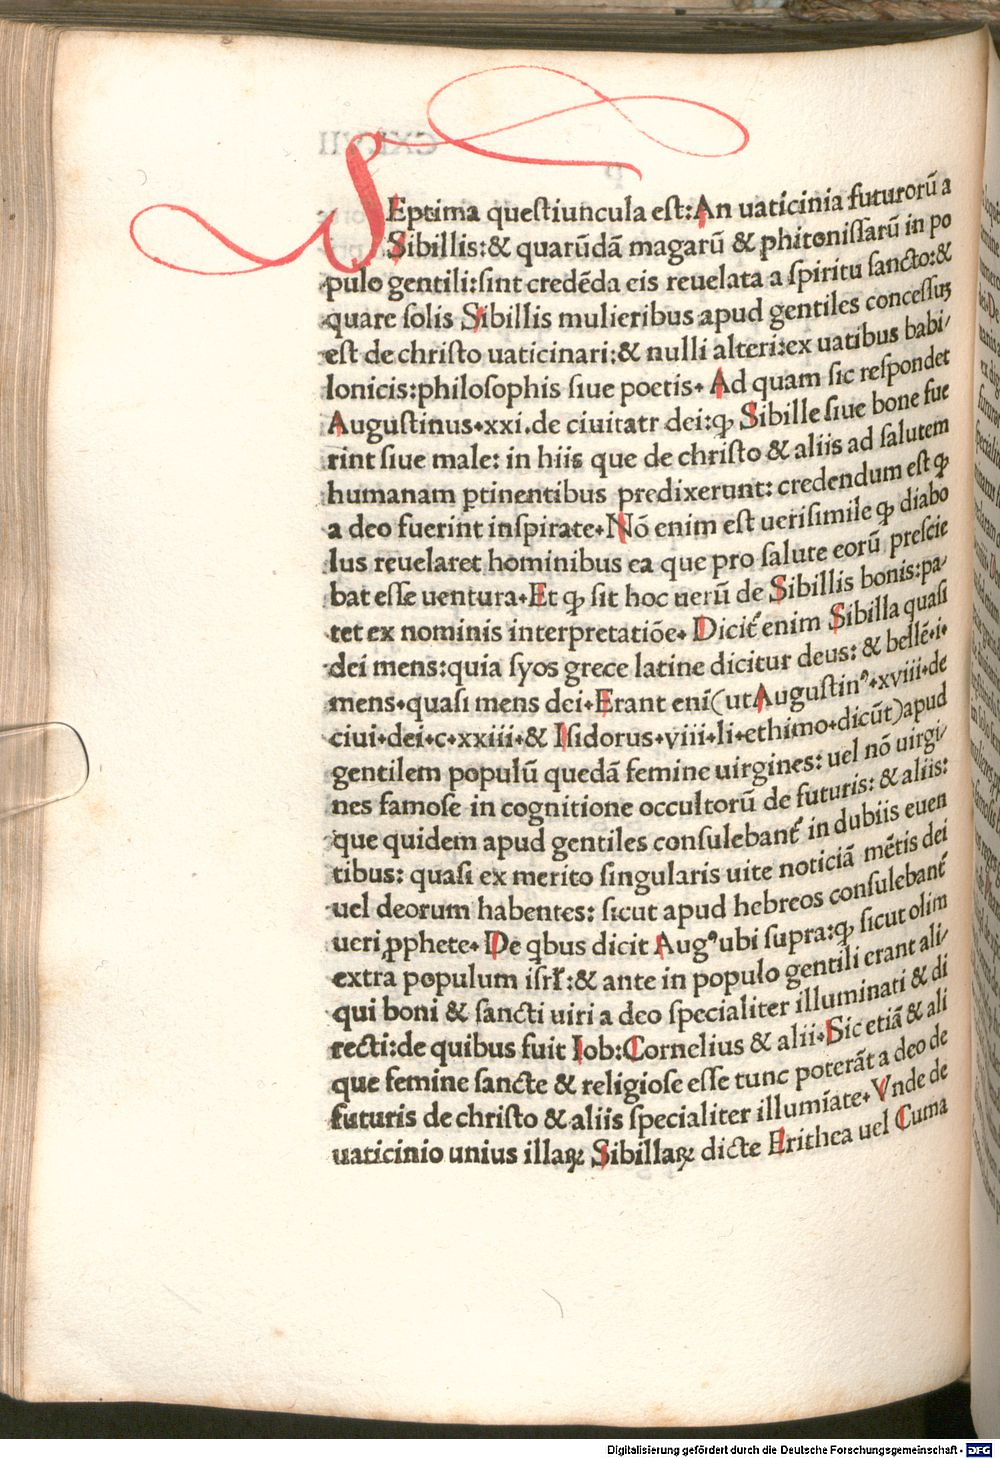 SEptima questiuncula est:An uaticinia futurorũ a
Sibillis:& quarũdã magarũ & phitonissarũ in po
pulo gentili:sint credẽda eis reuelata a spiritu sancto:&
quare solis Sibillis mulieribus apud gentiles concessuꝫ
est de christo uaticinari:& nulli alteri:ex uatibus babi/
lonicis:philosophis siue poetis. Ad quam sic respondet
Augustinus.xxi.de ciuitatr dei:ꝙ Sibille siue bone fue
rint siue male: in hiis que de christo & aliis ad salutem
humanam ꝑtinentibus predixerunt: credendum est ꝙ
a deo fuerint inspirate. Nõ enim est uerisimile ꝙ diabo
lus reuelaret hominibus ea que pro salute eorũ prescie
bat esse uentura. Et ꝙ sit hoc uerũ de Sibillis bonis:pa/
tet ex nominis interpretatiõe. Dicit̃ enim Sibilla quasi
dei mens:quia syos grece latine dicitur deus: & bellẽ.i.
mens.quasi mens dei. Erant enĩ(ut Augustinꝰ.xviii.de
ciui.dei.c.xxiii.& Isidorus.viii.li.ethimo.dicũt)apud
gentilem populũ quedã femine uirgines: uel nõ uirgi/
nes famose in cognitione occultorũ de futuris: & aliis:
que quidem apud gentiles consulebant̃ in dubiis euen
tibus: quasi ex merito singularis uite noticiã mẽtis dei
uel deorum habentes: sicut apud hebreos consulebant̃
ueri ꝓphete. De qbus dicit Augꝰ ubi supra:ꝙ sicut olim
extra populum isrł:& ante in populo gentili erant ali/
qui boni & sancti uiri a deo specialiter illuminati & di
recti:de quibus fuit Iob:Cornelius & alii. Sic etiã & ali
que femine sancte & religiose esse tunc poterãt a deo de
futuris de christo & aliis specialiter illumĩate. Vnde de
uaticinio unius illaꝝ Sibillaꝝ dicte Erithea uel Cuma
Digitalisierung gefördert durch die Deutsche Forschungsgemeinschaft - DFG